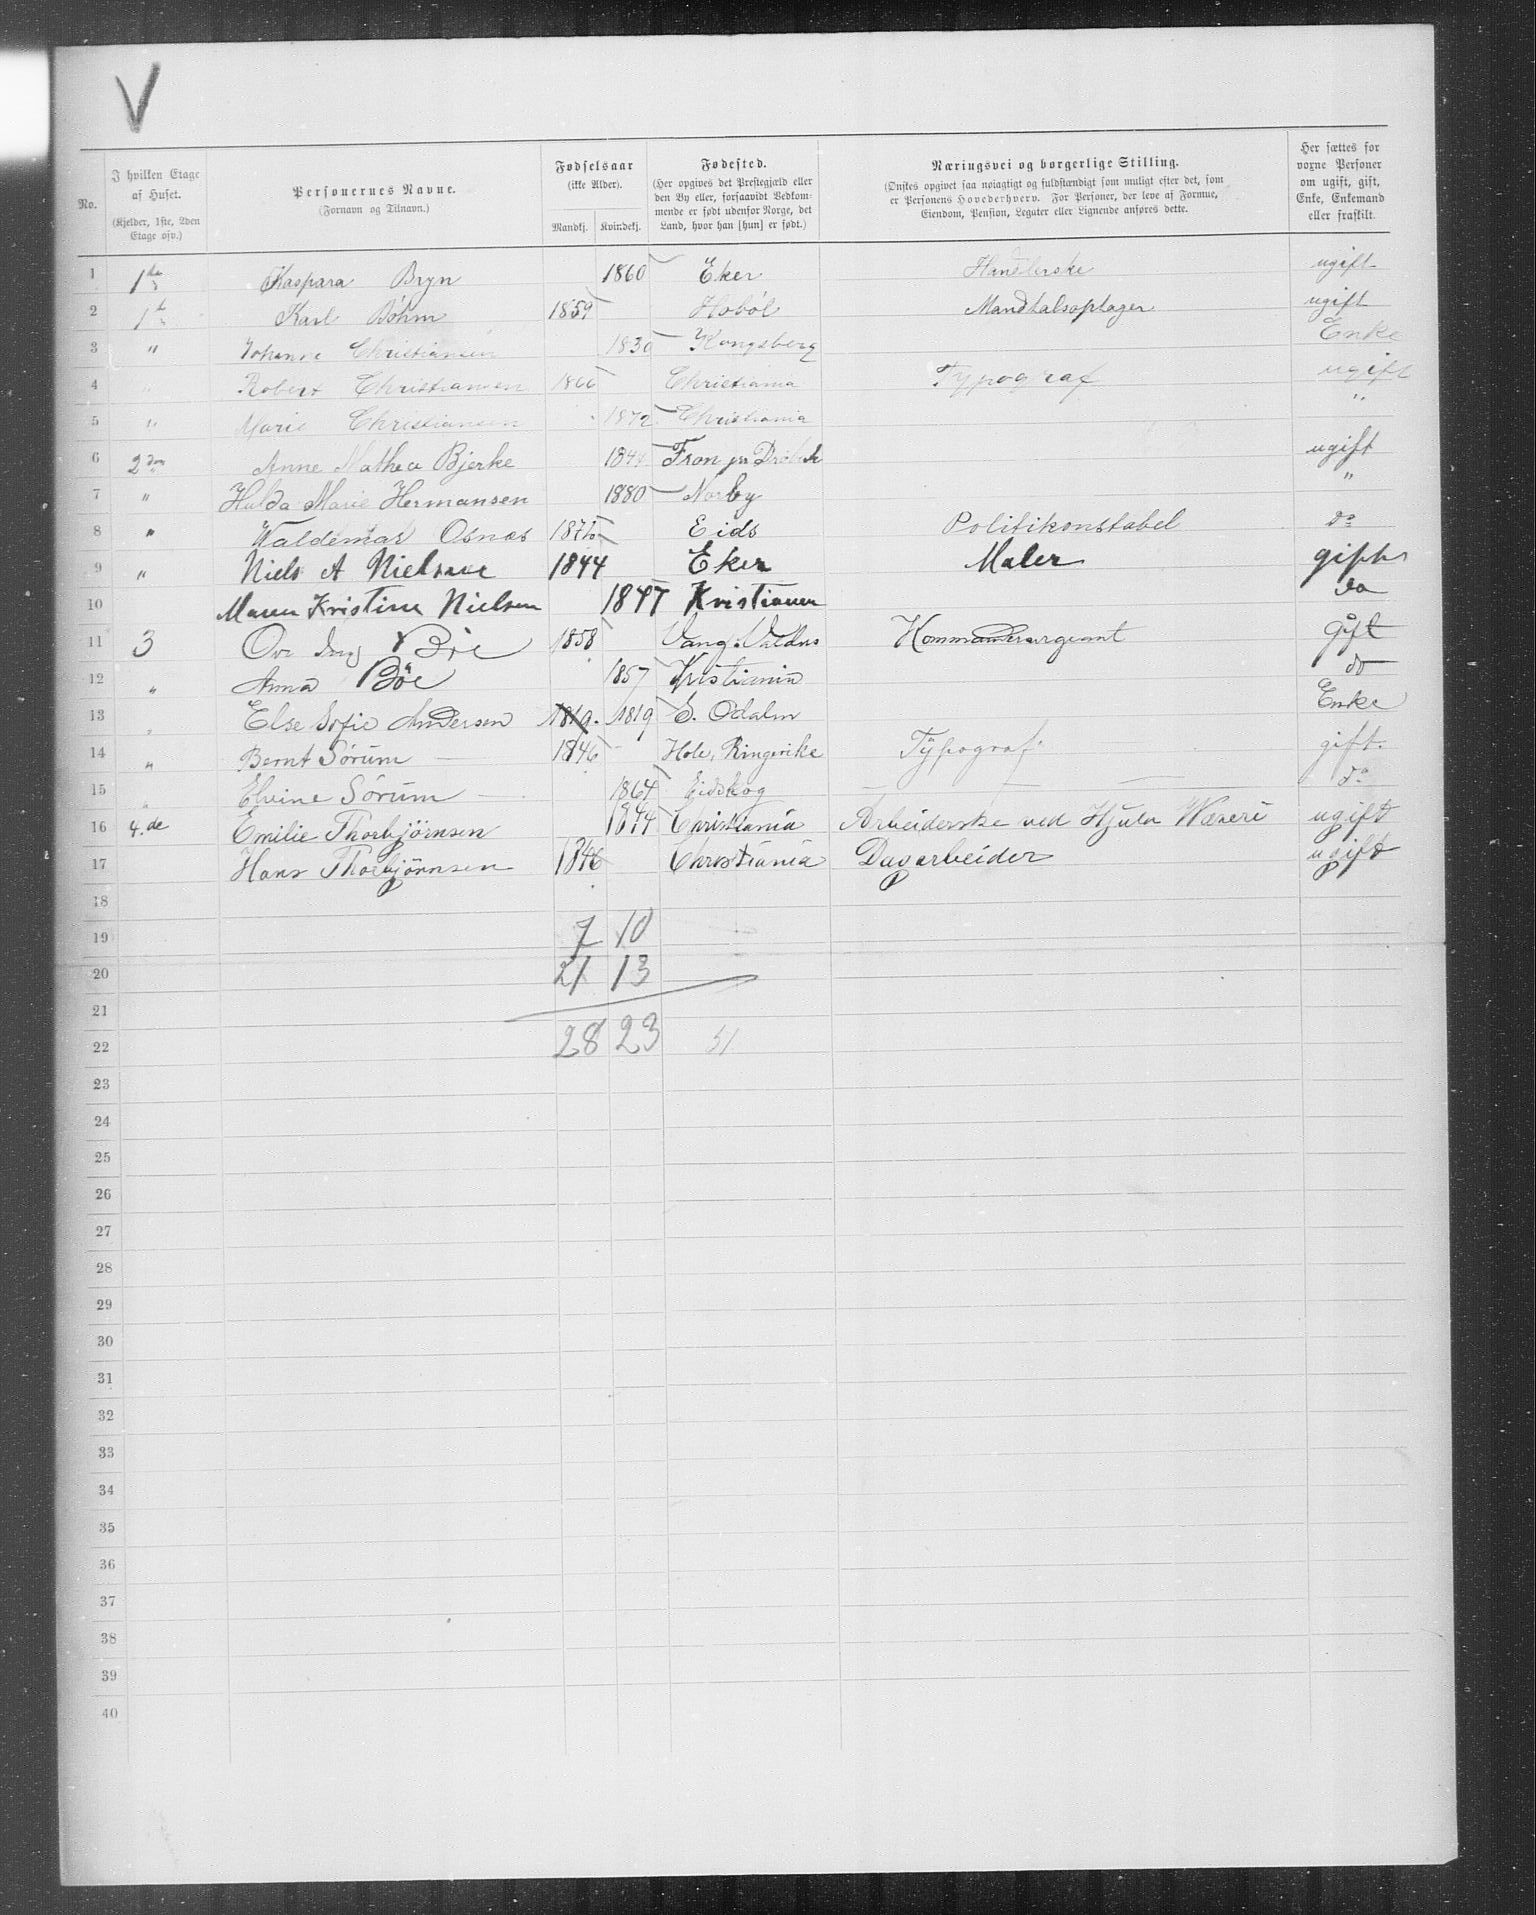 V
No.
I hvilken Etage af Huset. (Kjelder, 1ste, 2den Etage osv.)
Personernes Navne. (Fornavn og Tilnavn.)
Fødselsaar (ikke Alder). Mandkj. Kvindekj.
Fødested. (Her opgives det Prestegjæld eller den By eller, forsaavidt Vedkommende er født udenfor Norge, det Land, hvor han [hun] er født.)
Næringsvei og borgerlige Stilling. (Ønskes opgivet saa nøiagtigt og fuldstændigt som muligt efter det, som er Personens Hovederhverv. For Personer, der leve af Formue, Eiendom, Pension, Legater eller Lignende anføres dette.
Her sættes for voxne Personer om ugift, gift, Enke, Enkemand eller fraskilt.
1 1 Kaspara Bryn 1860 Eker Handlerske ugift
2 1 Karl Bøhm 1859 Hobøl Mandtalsoptager ugift
3 " Johanne Christiansen 1830 Kongsberg Enke
4 Robert Christiansen 1866 Christiania Typograf ugift
5 " Marie Christiansen 1872 Christiania "
6 2den Anne Mathea Bjerke Fron pr Drøbak ugift
7 " Hulda Marie Hermansen 1880 Norby "
8 " Waldemar Osnæs Eids Politikonstabel do
9 " Niels A Nielsen 1844 Eker Maler gift
10 Maren Kristine Nielsen 1847 Kristiania do
11 3 Ove Bøe 1858 Vang Valdres Kommandersergeant gift
12 " Anna Bøe 1857 Kristiania do
13 " Else Sofie Andersen 1819. 1819 S. Odalen Enke
14 " Bernt Sørum 1846 Hole, Ringerike Typograf gift.
15 " Elvine Sørum 1864 Eidskog do
16 4.de Emilie Thorbjörnsen 1844 Christiania Arbeiderske ved Hjula Wæveri ugift
17 Hans Thorbjörnsen 1846 Christiania Dagarbeider ugift
18
19 7 10
20 21 13
21
22 28 23 51
23
24
25
26
27
28
29
30
31
32
33
34
35
36
37
38
39
40